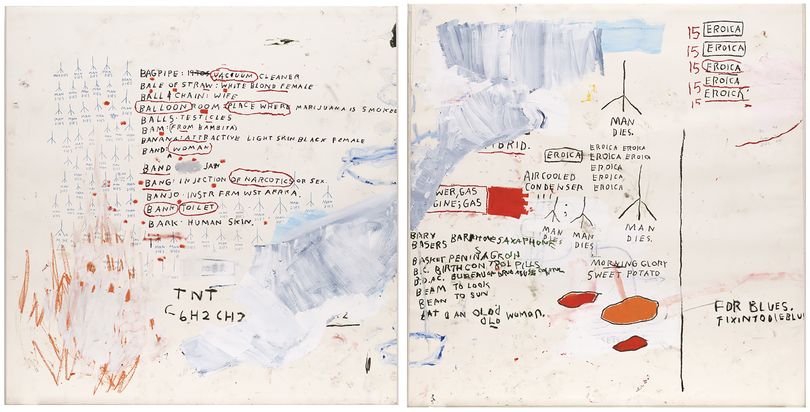 BAGPIPE: 1940s VACUUM CLEANER
BALE OF STRAW: WHITE BLOND FEMALE
BALL & CHAIN: WIFE
BALLOON ROOM: PLACE WHERE MARIJUANA IS SMOKED
BALLS: TESTICLES
BAM: (FROM BAMBITA)
BANANA: ATTRACTIVE LIGHT SKIN BLACK FEMALE
BAND: WOMAN
BAND JAN
BANG: INJECTION OF NARCOTICS OR SEX
BANJO: INSTR FRM WST AFRICA.
BANK: TOILET
BARK: HUMAN SKIN.
TNT
15 EROICA
15 EROICA
15 EROICA
EROICA
15 EROICA
15
MAN
DIES.
BRID.
EROICA EROICA EROICA
EROICA EROICA
EROICA
EROICA
EROICA
AIRCOOLED
CONDENSER
WER,GAS
GINE;GAS
MAN
DIES
MAN
DIES.
MAN
DIES.
BARY BARITONE SAXAPHONE
BASERS
BASKET
B.C. BIRTH CONTROL PILLS
BEAM TO LOOK
BEAN TO SUN
EAT AN OLD WOMAN.
OLD
MORNING GLORY
SWEET POTATO
FOR BLUES.
FIXINTODIEBLU